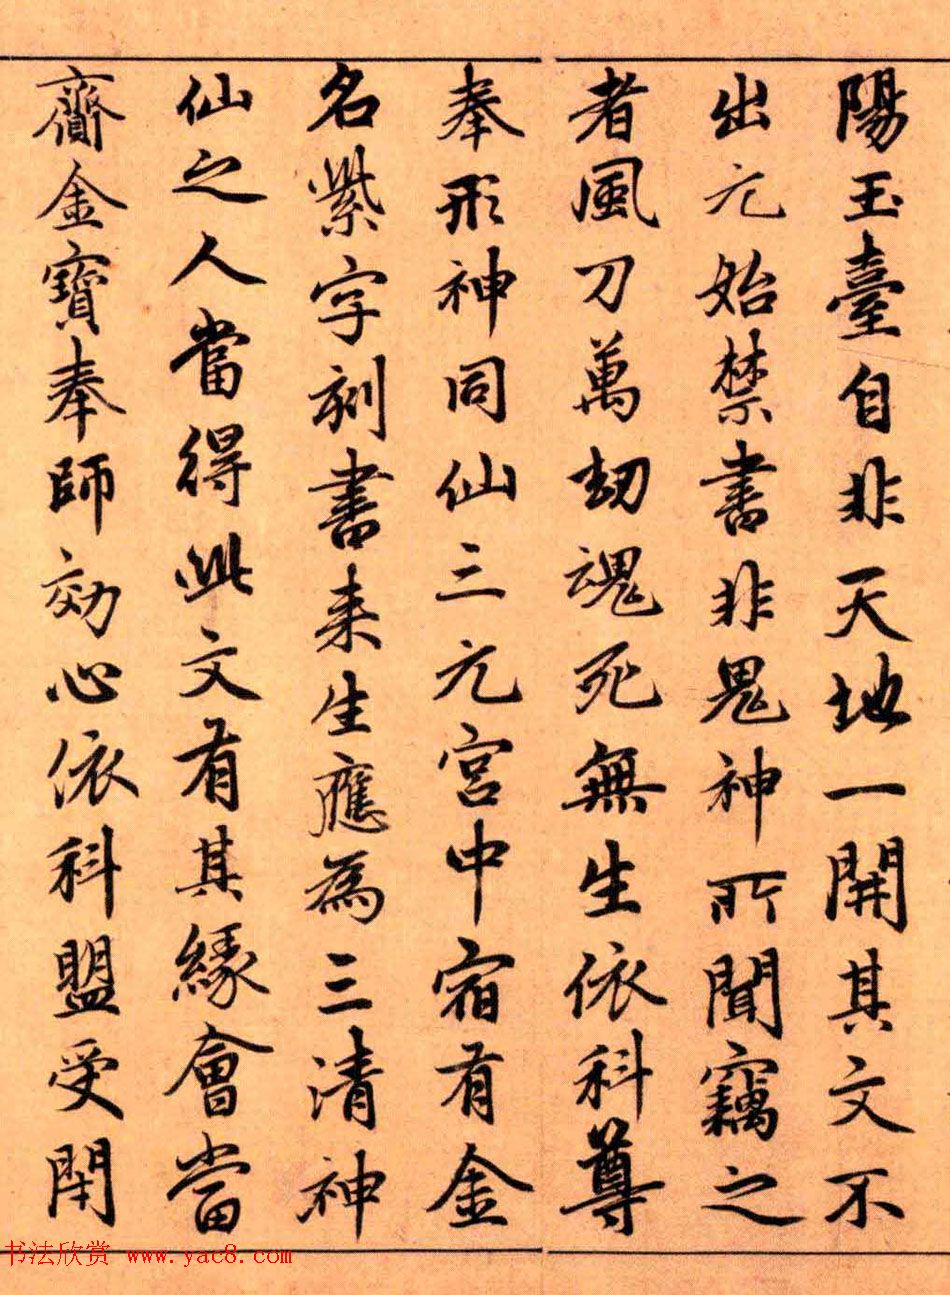 陽玉臺自非天地一開其文不
出元始禁書非鬼神所聞竊之
者風刀萬劫魂死無生依科尊
奉形神同仙三元宮中宿有金
名紫字刻書来生應為三清神
仙之人當得此文有其緣會當
齎金寶奉師効心依科盟受閇
书法欣赏 www.yac8.com